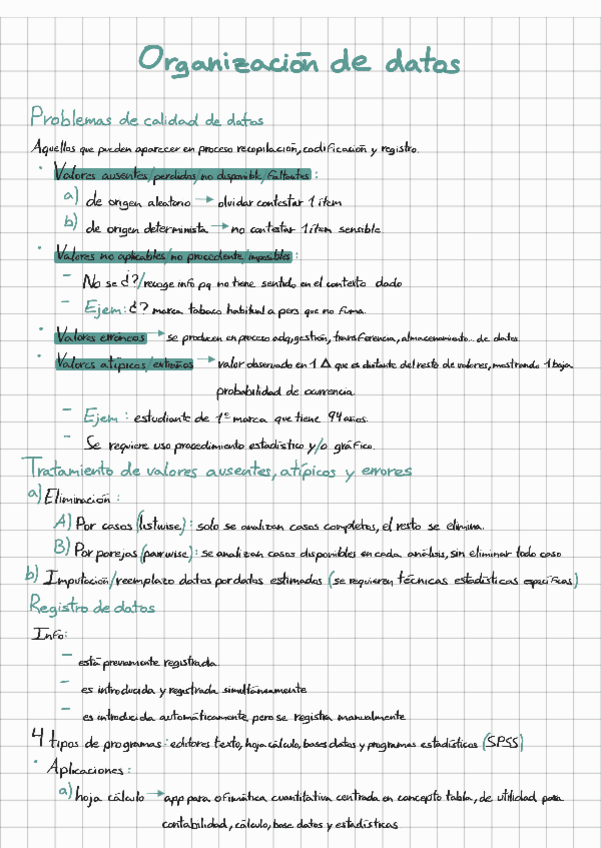 Organización de datos
Problemas de calidad de datos
Aquellos que pueden aparecer en proceso recopilación, codificación y registro.
· Valores ausentes/perdidos/no disponible/faltantes:
a) de origen aleatorio → olvidar contestar 1 ítem
b) de origen determinista → no contestar 1 ítem sensible
· Valores no aplicables/no procedente/imposibles:
– No se ¿?/recoge info pq no tiene sentido en el contexto dado
– Ejem: ¿? marca tabaco habitual a pers que no fuma.
· Valores erróneos → se producen en proceso adq, gestión, transferencia, almacenamiento... de datos.
· Valores atípicos/extraños → valor observado en 1 Δ que es distante del resto de valores, mostrando 1 baja
probabilidad de ocurrencia.
– Ejem: estudiante de 1º marca que tiene 94 años.
– Se requiere uso procedimiento estadístico y/o gráfico.
Tratamiento de valores ausentes, atípicos y errores
a) Eliminación:
A) Por casos (listwise): solo se analizan casos completos, el resto se elimina.
B) Por parejas (pairwise): se analizan casos disponibles en cada análisis, sin eliminar todo caso
b) Imputación/reemplazo datos por datos estimados (se requieren técnicas estadísticas específicas)
Registro de datos
Info:
– está previamente registrada
– es introducida y registrada simultáneamente
– es introducida automáticamente, pero se registra manualmente
4 tipos de programas: editores texto, hoja cálculo, bases datos y programas estadísticos (SPSS)
· Aplicaciones:
a) hoja cálculo → app para ofimática cuantitativa centrada en concepto tabla, de utilidad para
contabilidad, cálculo, base datos y estadísticas